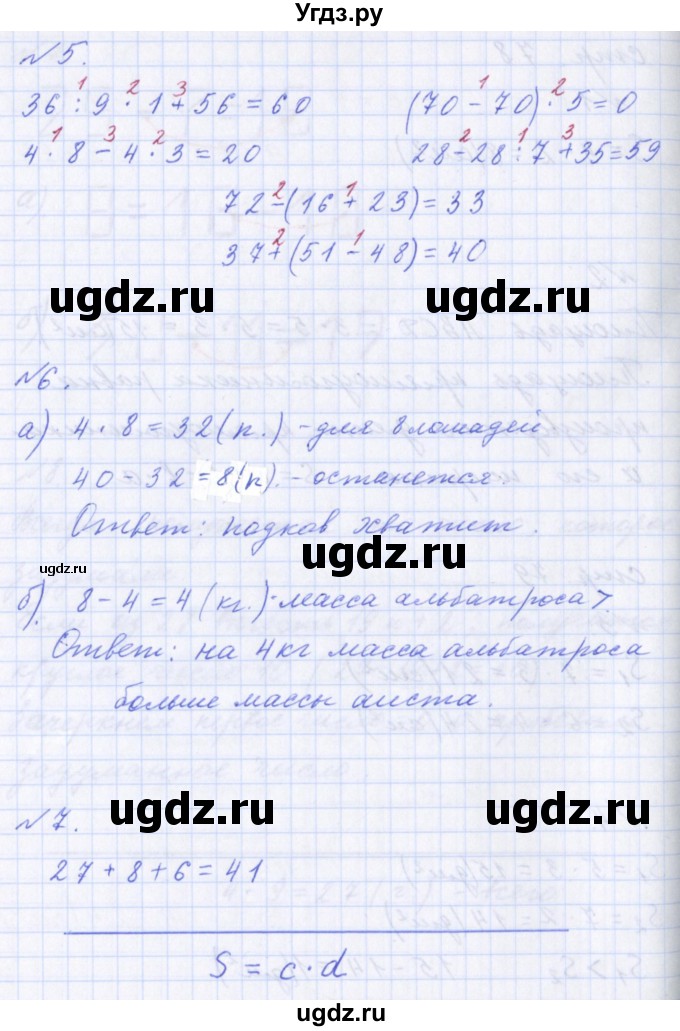 Угдз.ру
№5.
36 : 9 · 1 + 56 = 60
1 2 3
(70 - 70) · 5 = 0
1 2
4 · 8 - 4 · 3 = 20
1 3 2
28 - 28 : 7 + 35 = 59
2 1 3
72 - (16 + 23) = 33
2 1
37 + (51 - 48) = 40
2 1
ugdz.ru ugdz.ru
№6.
а) 4 · 8 = 32 (п.) - для 8 лошадей
40 - 32 = 8 (п). - останется
Ответ: подков хватит.
ugdz.ru
ugdz.ru
б). 8 - 4 = 4 (кг.) - масса альбатроса >.
Ответ: на 4 кг масса альбатроса
больше массы аиста.
ugdz.ru ugdz.ru
№7.
27 + 8 + 6 = 41
S = c · d
ugdz.ru